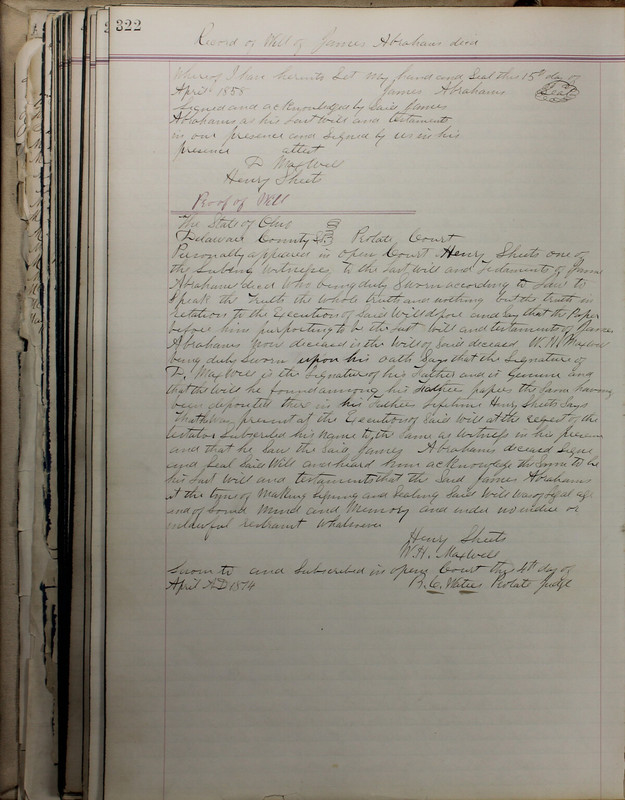 322
Record of Will of James Abrahams decd
Whereof I have hereunto Set my hand and Seal this 15th day of
April 1858 James Abrahams Seal
Signed and acknowledged by Said James
Abrahams as his Last Will and testament
in our presence and signed by us in his
presence attest
T. Maxwell
Henry Sheets
Proof of Will
The State of Ohio
Delaware County SS Probate Court
Personally appeared in open Court Henry Sheets one of
the Subscg Witnesses to the Last Will and Testament of James
Abrahams decd who being duly Sworn according to Law to
Speak the truth the whole truth and nothing but the truth in
relation to the Execution of Said Will depose and say that the Paper
before him purporting to be the Last Will and testament of James
Abrahams now deceased is the Will of Said deceased W. H. Maxwell
being duly Sworn upon his oath Says that the Signature of
T. Maxwell is the Signature of his Father and is Genuine and
that the will he found among his Father papers the Same having
been deposited there in his Father lifetime Henry Sheets Says
that he was present at the Execution of Said Will at the request of the
testator Subscribed his Name to the Same as Witness in his presence
and that he Saw the Said James Abrahams deceased Sign
and Seal Said Will and heard him acknowledge the Same to be
his Last Will and testament that the Said James Abrahams
at the time of Making Signing and Sealing Said Will was of legal age
and of Sound Mind and Memory and under no undue or
unlawful restraint whatsoever
Henry Sheets
W. H. Maxwell
Sworn to and Subscribed in open Court this 4th day of
April AD 1874 B. C. Waters Probate Judge